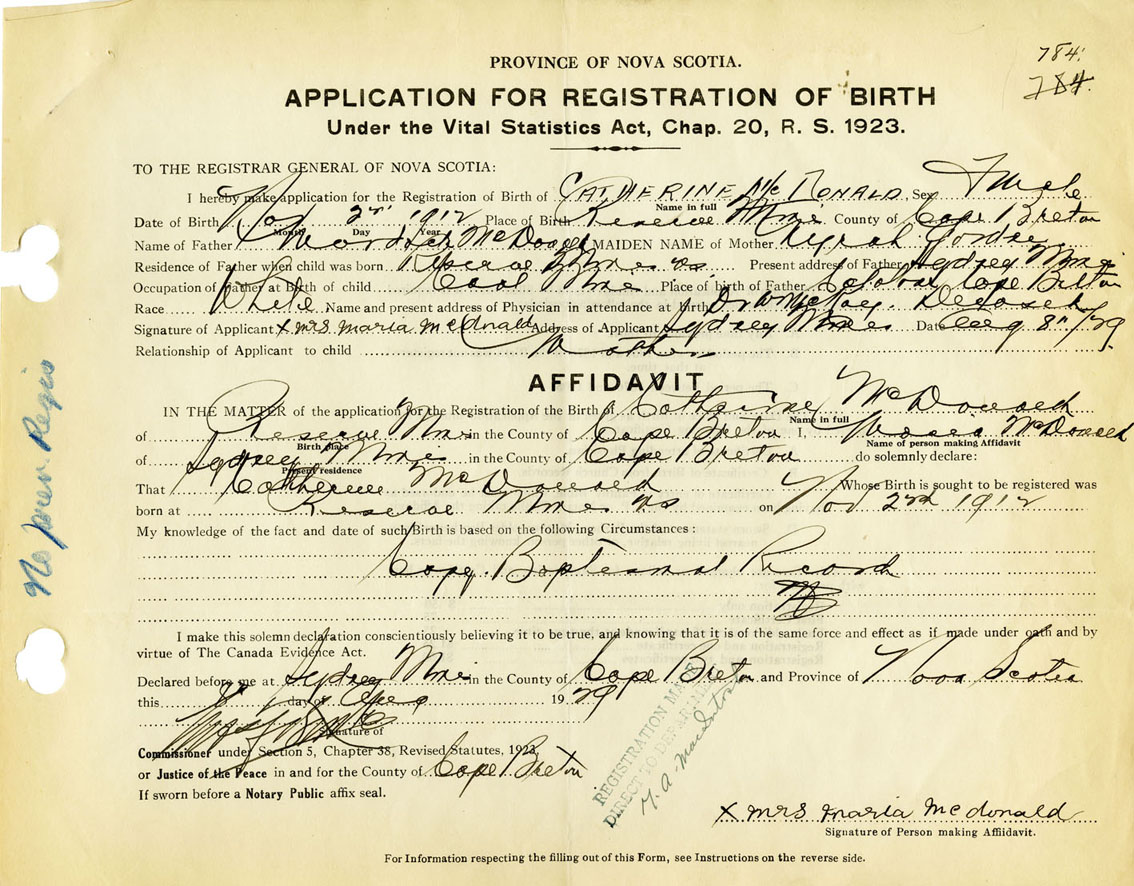 784.
784.
PROVINCE OF NOVA SCOTIA.
APPLICATION FOR REGISTRATION OF BIRTH
Under the Vital Statistics Act, Chap. 20, R. S. 1923.
TO THE REGISTRAR GENERAL OF NOVA SCOTIA:
I hereby make application for the Registration of Birth of CATHERINE McDONALD Sex Female
Name in full
Date of Birth Nov 2nd 1912 Place of Birth Reserve Mines County of Cape Breton
Month Day Year
Name of Father Murdoch McDonald MAIDEN NAME of Mother
Residence of Father when child was born Reserve Mines NS Present address of Father Sydney Mines
Occupation of Father at Birth of child Coal Mine Place of birth of Father Cape Breton
Race White Name and present address of Physician in attendance at birth Deceased
Signature of Applicant x mrs maria mcdonald Address of Applicant Sydney Mines Date Aug 8th/29
Relationship of Applicant to child Mother
AFFIDAVIT
IN THE MATTER of the application for the Registration of the Birth of Catherine McDonald
Name in full
of Reserve Mines in the County of Cape Breton I, Maria McDonald
Birth place Name of person making Affidavit
of Sydney Mines in the County of Cape Breton do solemnly declare:
Present residence
That Catherine McDonald Whose Birth is sought to be registered was
born at Reserve Mines NS on Nov 2nd 1912
My knowledge of the fact and date of such Birth is based on the following Circumstances:
Copy. Baptismal Record
I make this solemn declaration conscientiously believing it to be true, and knowing that it is of the same force and effect as if made under oath and by
virtue of The Canada Evidence Act.
Declared before me at Sydney Mines in the County of Cape Breton and Province of Nova Scotia
this 8 day of Aug 1929
Signature of
Commissioner under Section 5, Chapter 38, Revised Statutes, 1923,
or Justice of the Peace in and for the County of Cape Breton
If sworn before a Notary Public affix seal.
REGISTRATION MADE
DIRECT TO DEPARTMENT
x mrs maria mcdonald
Signature of Person making Affidavit.
For Information respecting the filling out of this Form, see Instructions on the reverse side.
No prev Regis